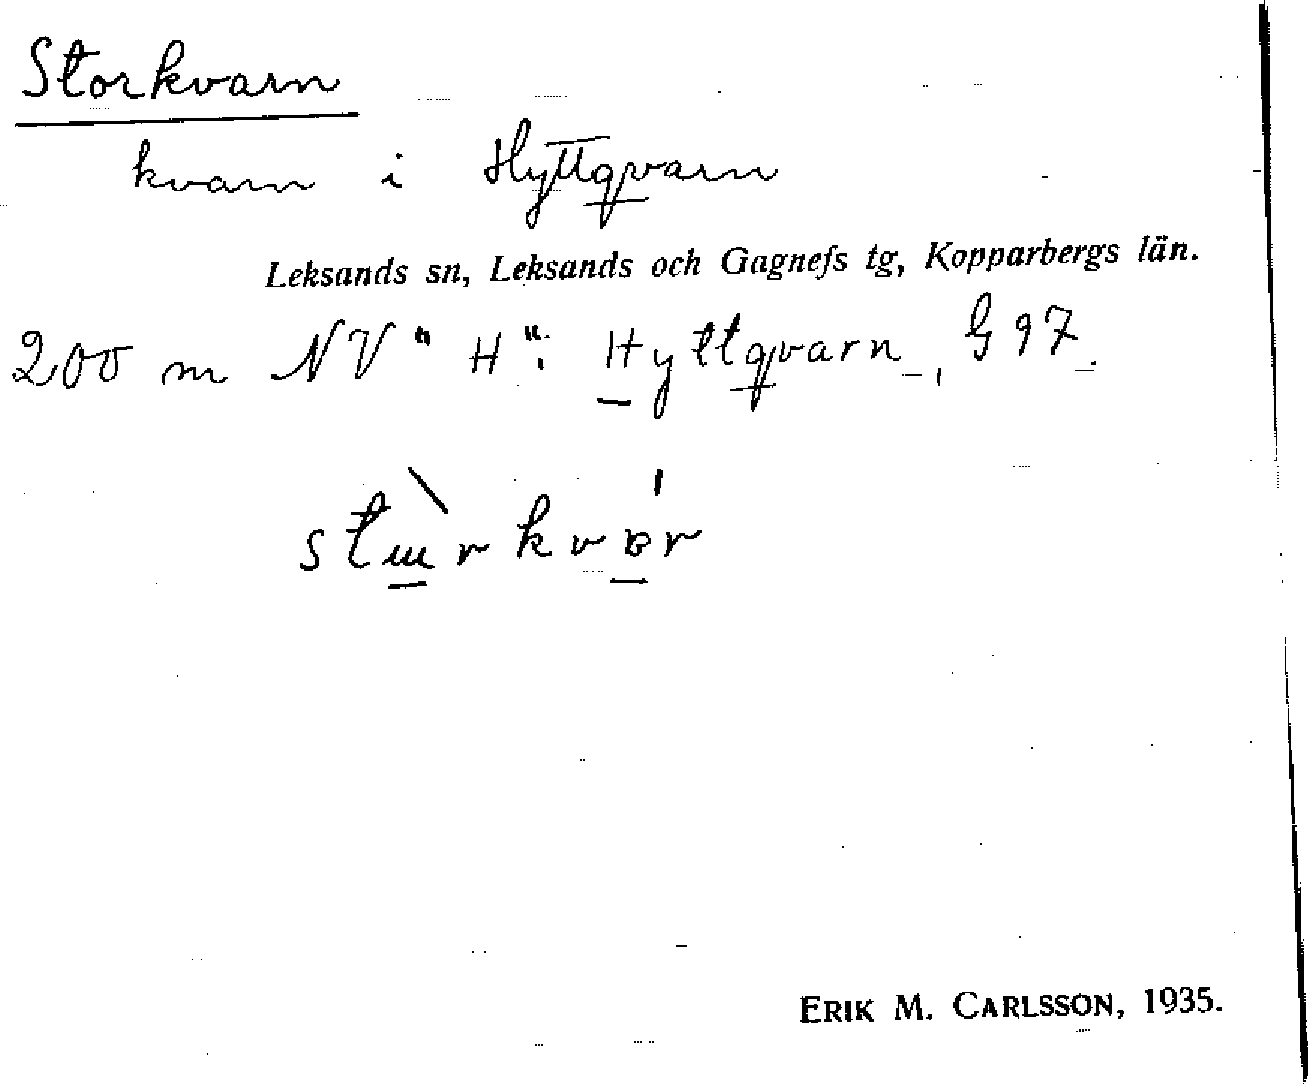 Storkvarn
kvarn i Hyttqvarn
Leksands sn, Leksands och Gagnefs tg, Kopparbergs län.
200 m NV "H": Hyttqvarn, G 97.
ERIK M. CARLSSON, 1935.